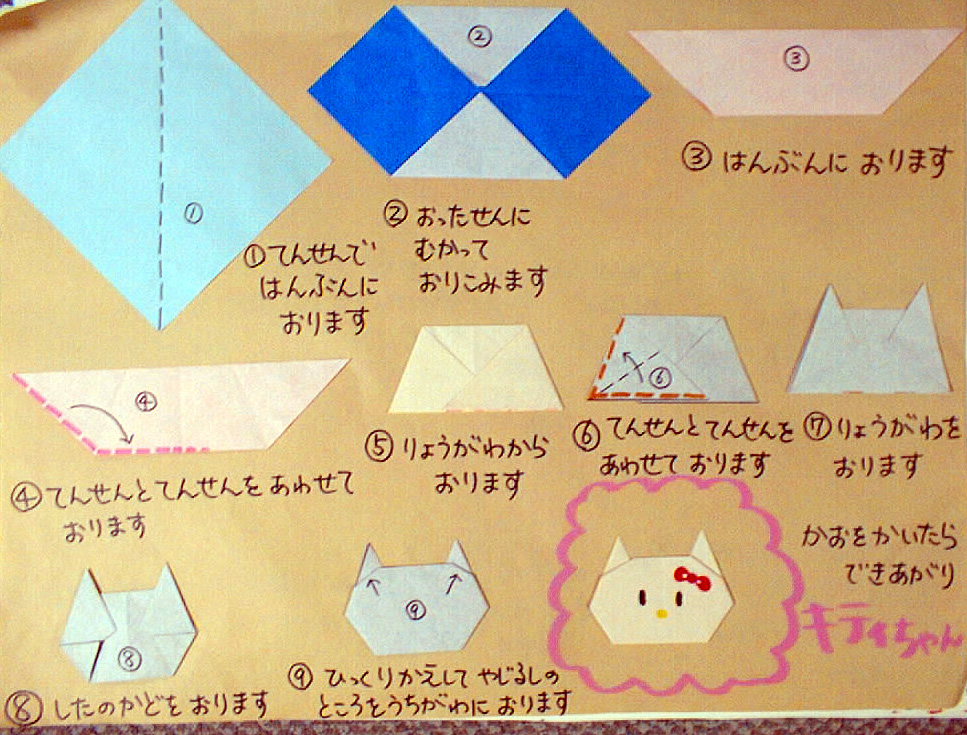 ①
①てんせんで
はんぶんに
おります
②
②おったせんに
むかって
おりこみます
③
③はんぶんに おります
④
④てんせんとてんせんを あわせて
おります
⑤りょうがわから
おります
⑥
⑥てんせんとてんせんを
あわせて おります
⑦りょうがわを
おります
⑧
⑧したのかどを おります
⑨
⑨ひっくりかえして やじるしの
ところをうちがわに おります
かおをかいたら
できあがり
キティちゃん